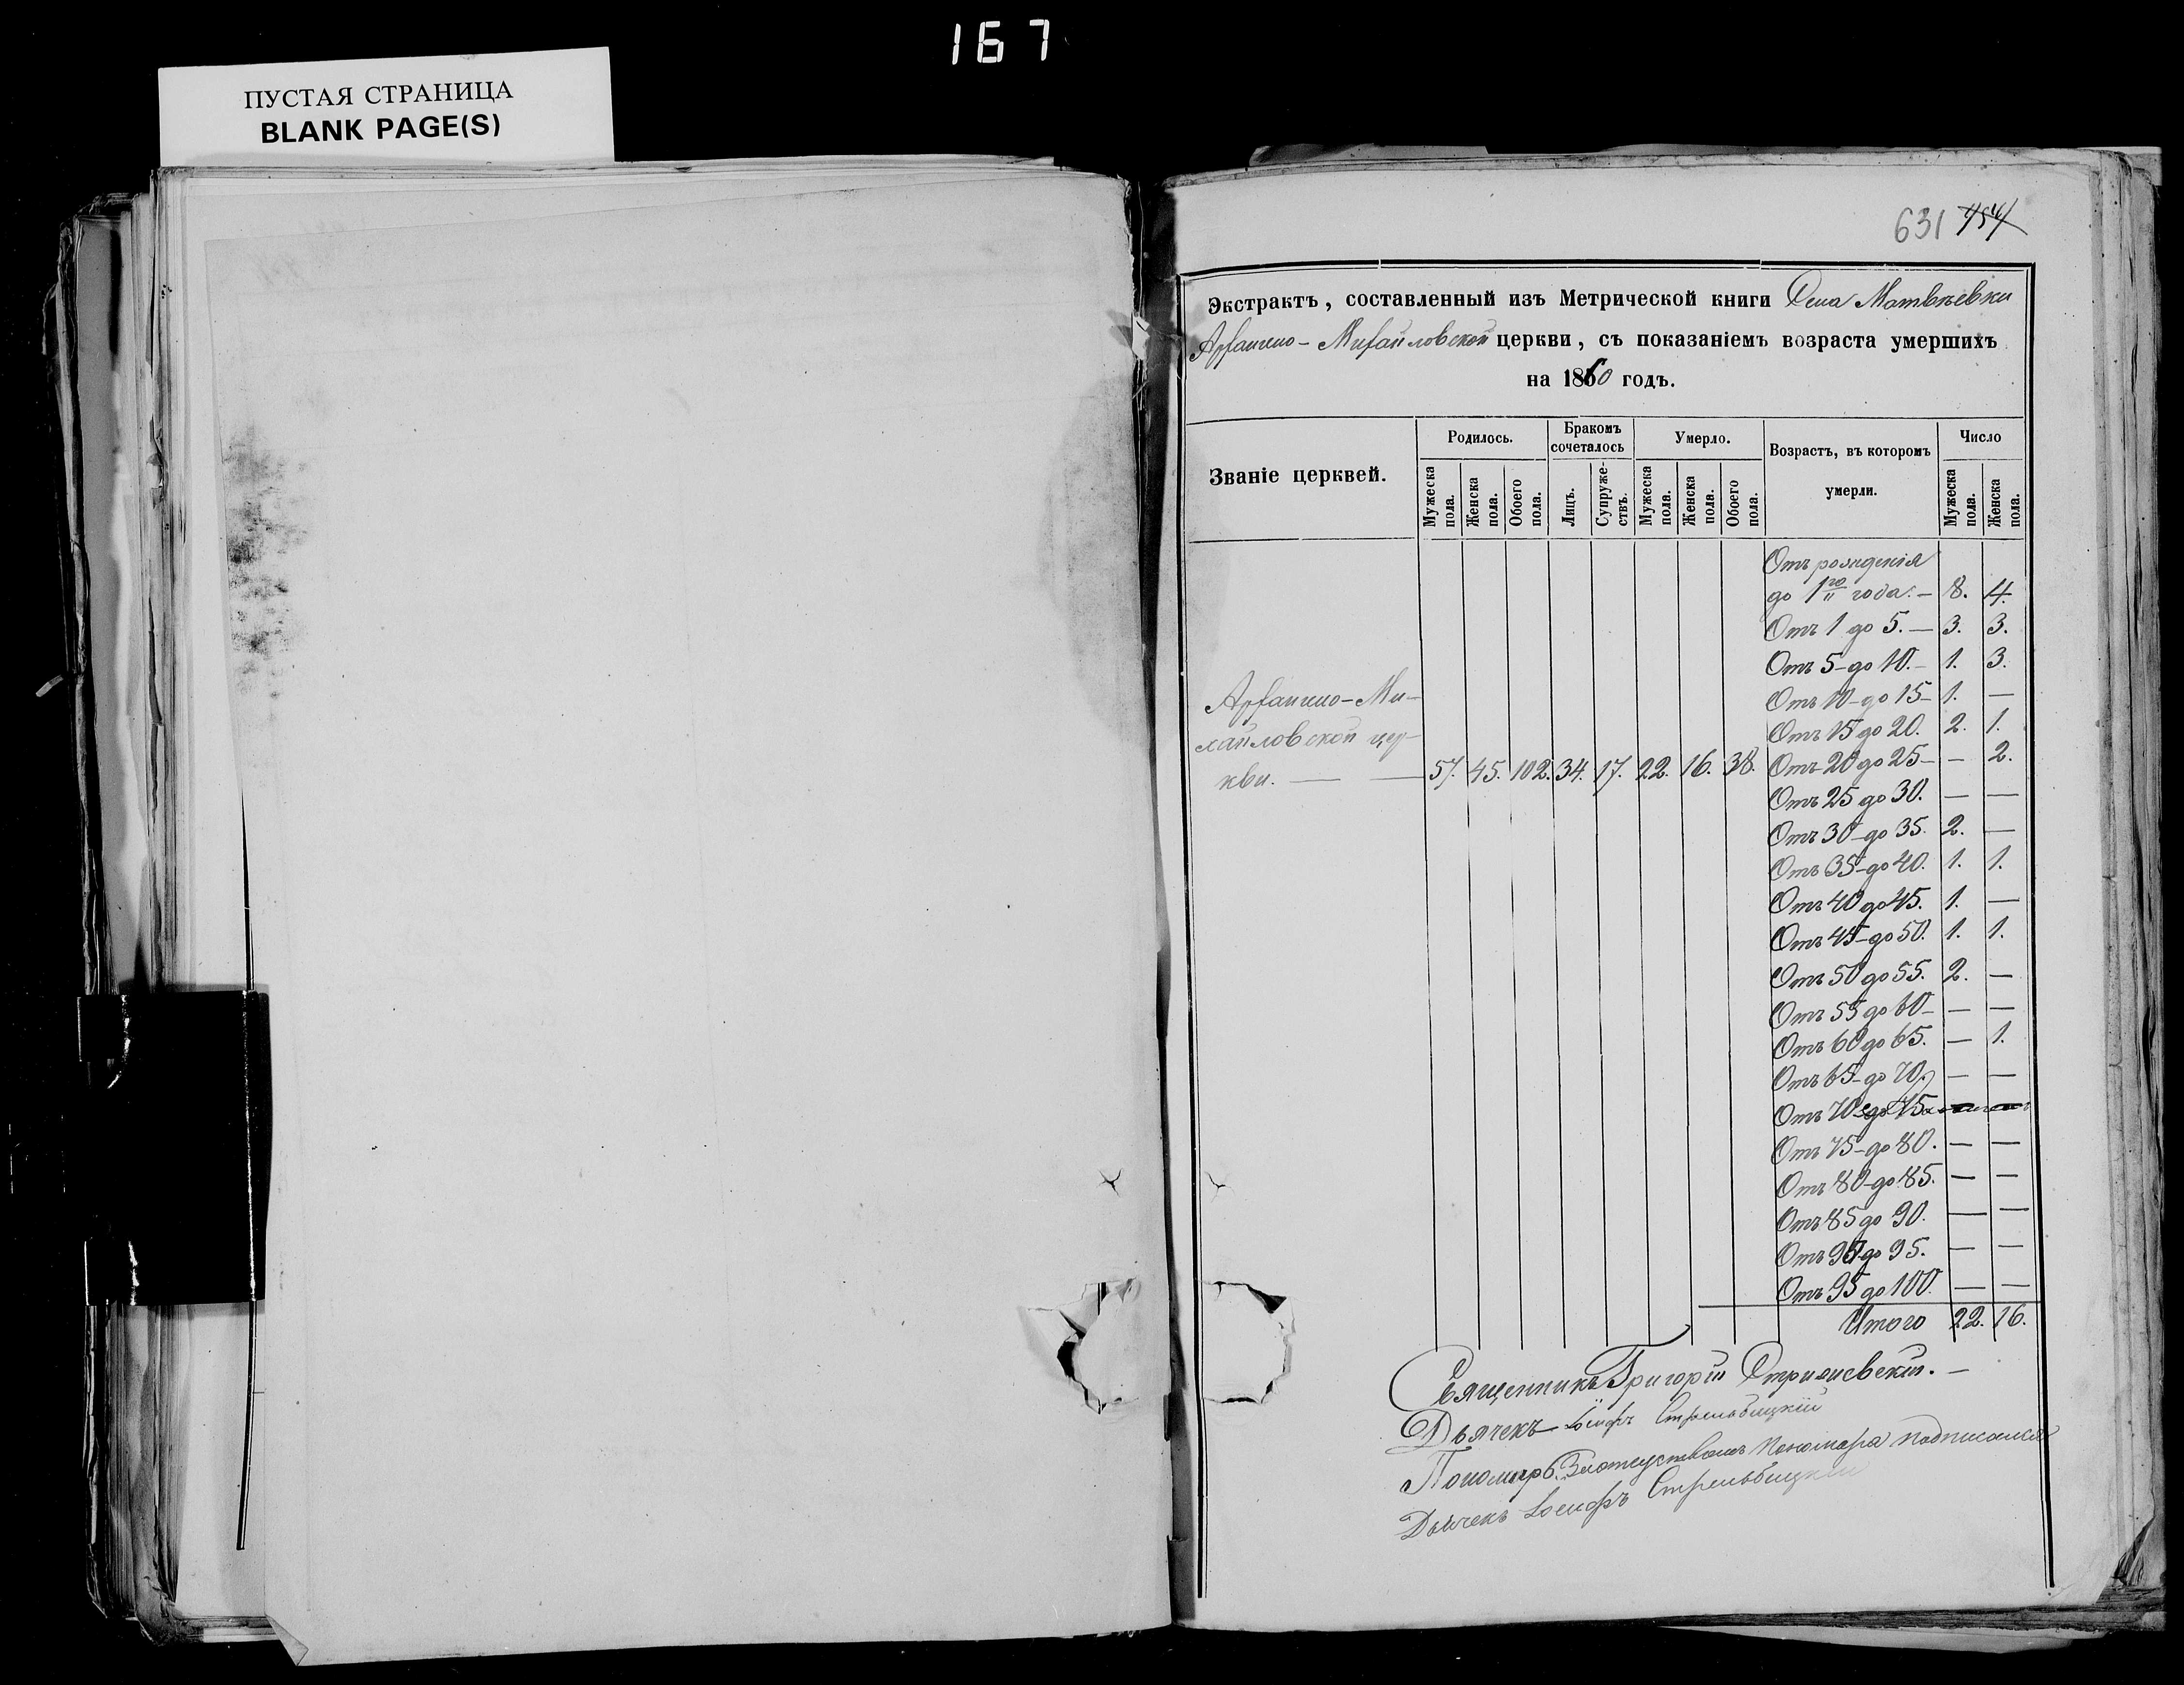 167
ПУСТАЯ СТРАНИЦА
BLANK PAGE(S)
631 454
Экстрактъ, составленный изъ Метрической книги Села Матвѣевки
Архангело-Михайловской церкви, съ показаніемъ возраста умершихъ
на 1860 годъ.
Званіе церквей.
Родилось.
Бракомъ сочеталось
Умерло.
Возрастъ, въ которомъ умерли.
Число
Мужеска пола.
Женска пола.
Обоего пола.
Лицъ.
Супружествъ.
Мужеска пола.
Женска пола.
Обоего пола.
Мужеска пола.
Женска пола.
Отъ рожденія
до 1го года. — 8. 4.
Отъ 1 до 5. — 3. 3.
Отъ 5 до 10. — 1. 3.
Отъ 10 до 15 — 1. —
Отъ 15 до 20. 2. 1.
Отъ 20 до 25 — — 2.
Отъ 25 до 30. — —
Отъ 30 до 35. 2. —
Отъ 35 до 40. 1. 1.
Отъ 40 до 45. 1. —
Отъ 45 до 50. 1. 1.
Отъ 50 до 55. 2. —
Отъ 55 до 60 — — —
Отъ 60 до 65. — 1.
Отъ 65 до 70. — —
Отъ 70 до 75 — —
Отъ 75 до 80. — —
Отъ 80 до 85. — —
Отъ 85 до 90. — —
Отъ 90 до 95. — —
Отъ 95 до 100. — —
Итого 22. 16.
Архангело-Ми-
хайловской цер-
кви. — — 57. 45. 102. 34. 17. 22. 16. 38.
Священникъ Григорій
Дьячекъ Іосифъ Стрельбицкій
Пономаръ б. За отсуствіемъ Пономаря подписался
Дьячекъ Іосифъ Стрельбицкій